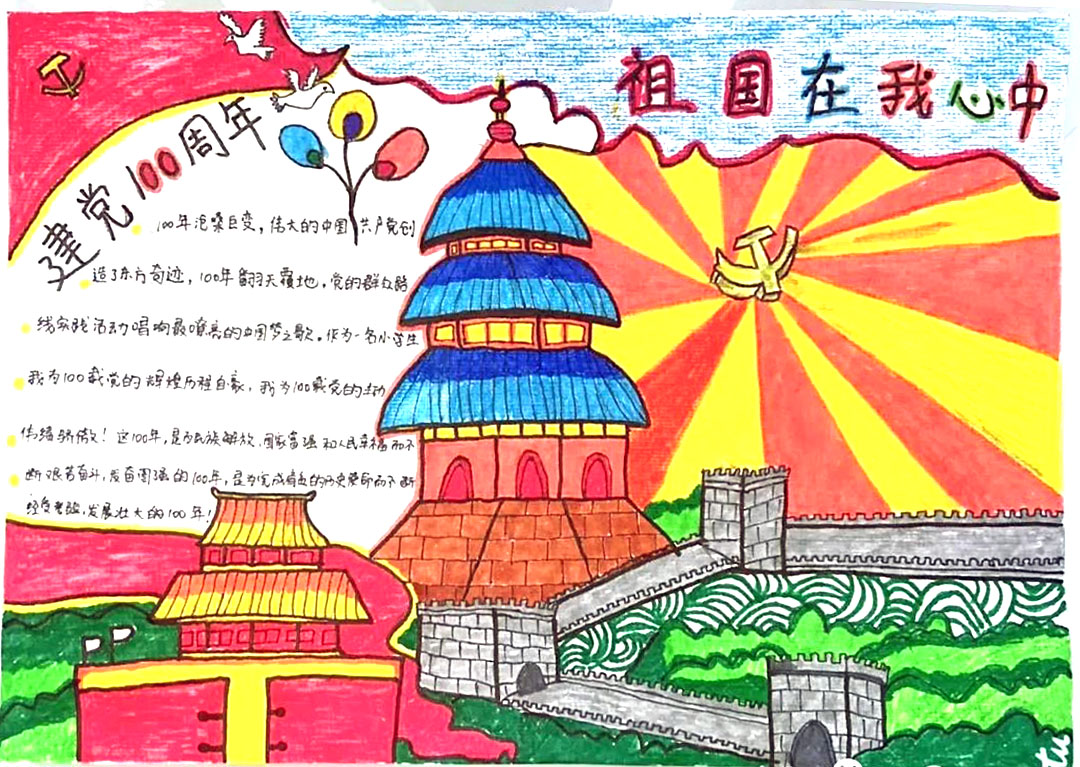 祖国在我心中
建党100周年
100年沧桑巨变，伟大的中国共产党创
造了东方奇迹，100年翻天覆地，党的群众路
线实践活动唱响最嘹亮的中国梦之歌。作为一名小学生
我为100载党的辉煌历程自豪，我为100载党的丰功
伟绩骄傲！这100年，是为民族解放、国家富强和人民幸福而不
断艰苦奋斗，发奋图强的100年，是为完成肩负的历史使命而不断
经受考验，发展壮大的100年！